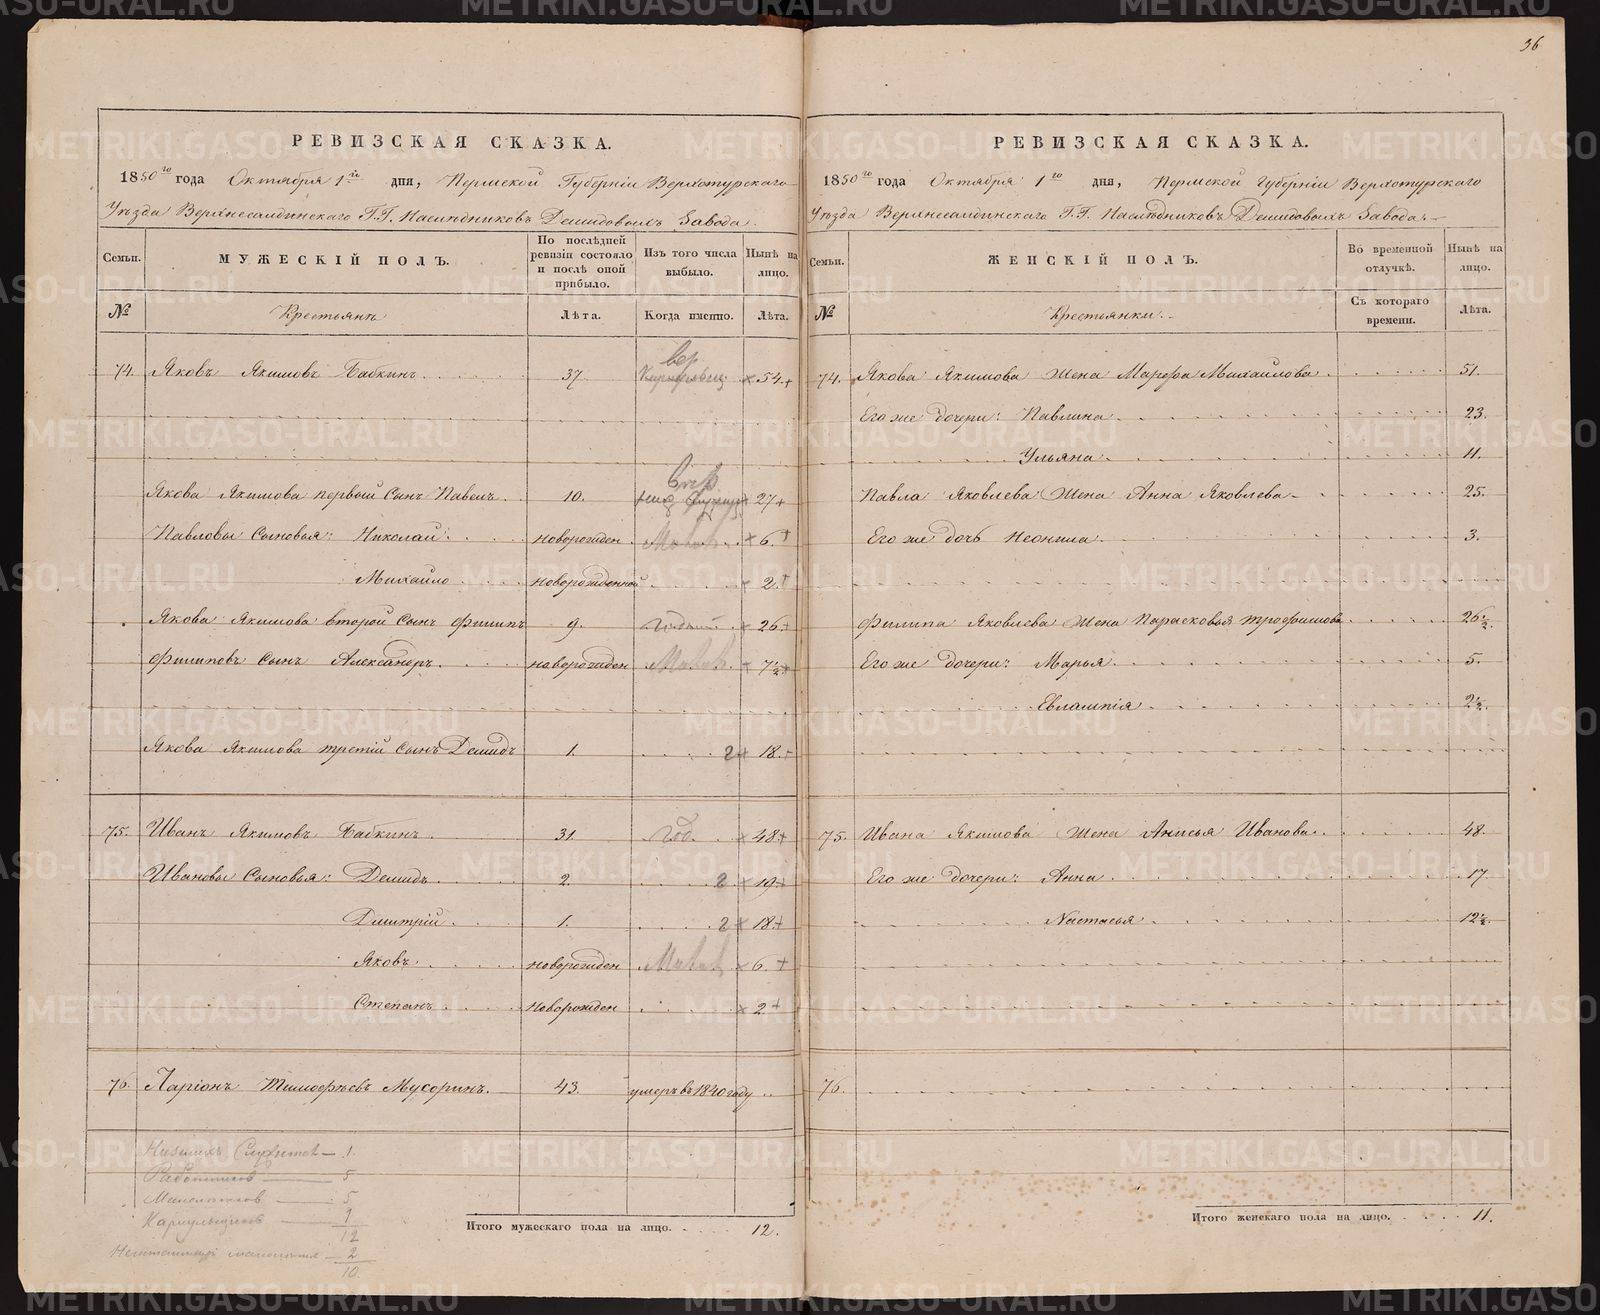 36
РЕВИЗСКАЯ СКАЗКА.
1850го года Октября 1го дня, Пермской Губерніи Верхотурскаго
Уѣзда Верхнесалдинскаго Г.Г. Наслѣдниковъ Демидовыхъ Завода.
Семьи. МУЖЕСКІЙ ПОЛЪ. По послѣдней ревизіи состояло и послѣ оной прибыло. Изъ того числа выбыло. Нынѣ на лицо.
№ Крестьянъ Лѣта. Когда именно. Лѣта.
74. Яковъ Якимовъ Бабкинъ 37. × 54. +
Якова Якимова первый сынъ Павелъ 10. 27 +
Павловы сыновья: Николай новорожден × 6. +
Михайло новорожденной × 2. +
Якова Якимова второй сынъ Филипъ 9. × 26. +
Филиповъ сынъ Александръ новорожден Малол × 7½ +
Якова Якимова третій сынъ Демидъ 1. 2 + 18. +
75. Иванъ Якимовъ Бабкинъ 31. год. × 48 +
Ивановы сыновья: Демидъ 2. 2 × 19 +
Дмитрій 1. 2 × 18. +
Яковъ новорожден Малол × 6. +
Степанъ новорожден × 2 +
76. Ларіонъ Тимофѣевъ Мусоринъ. 43. умеръ въ 1840 году
Служител — 1.
Работников — 5
Малолѣтков — 5
Караульщиков — 1
12
малолѣтн — 2
10.
Итого мужескаго пола на лицо. 12.
РЕВИЗСКАЯ СКАЗКА.
1850го года Октября 1го дня, Пермской Губерніи Верхотурскаго
Уѣзда Верхнесалдинскаго Г.Г. Наслѣдниковъ Демидовыхъ Завода.
Семьи. ЖЕНСКІЙ ПОЛЪ. Во временной отлучкѣ. Нынѣ на лицо.
№ Крестьянки. Съ котораго времени. Лѣта.
74. Якова Якимова жена Марфа Михайлова 51.
Его же дочери: Павлина 23.
Ульяна 11.
Павла Яковлева жена Анна Яковлева 25.
Его же дочь Неонила 3.
Филипа Яковлева жена Парасковья Трофимова 26½.
Его же дочери: Марья 5.
Евлампія 2½.
75. Ивана Якимова жена Анисья Иванова 48.
Его же дочери: Анна 17.
Настасья 12½.
76.
Итого женскаго пола на лицо. 11.
METRIKI.GASO-URAL.RU